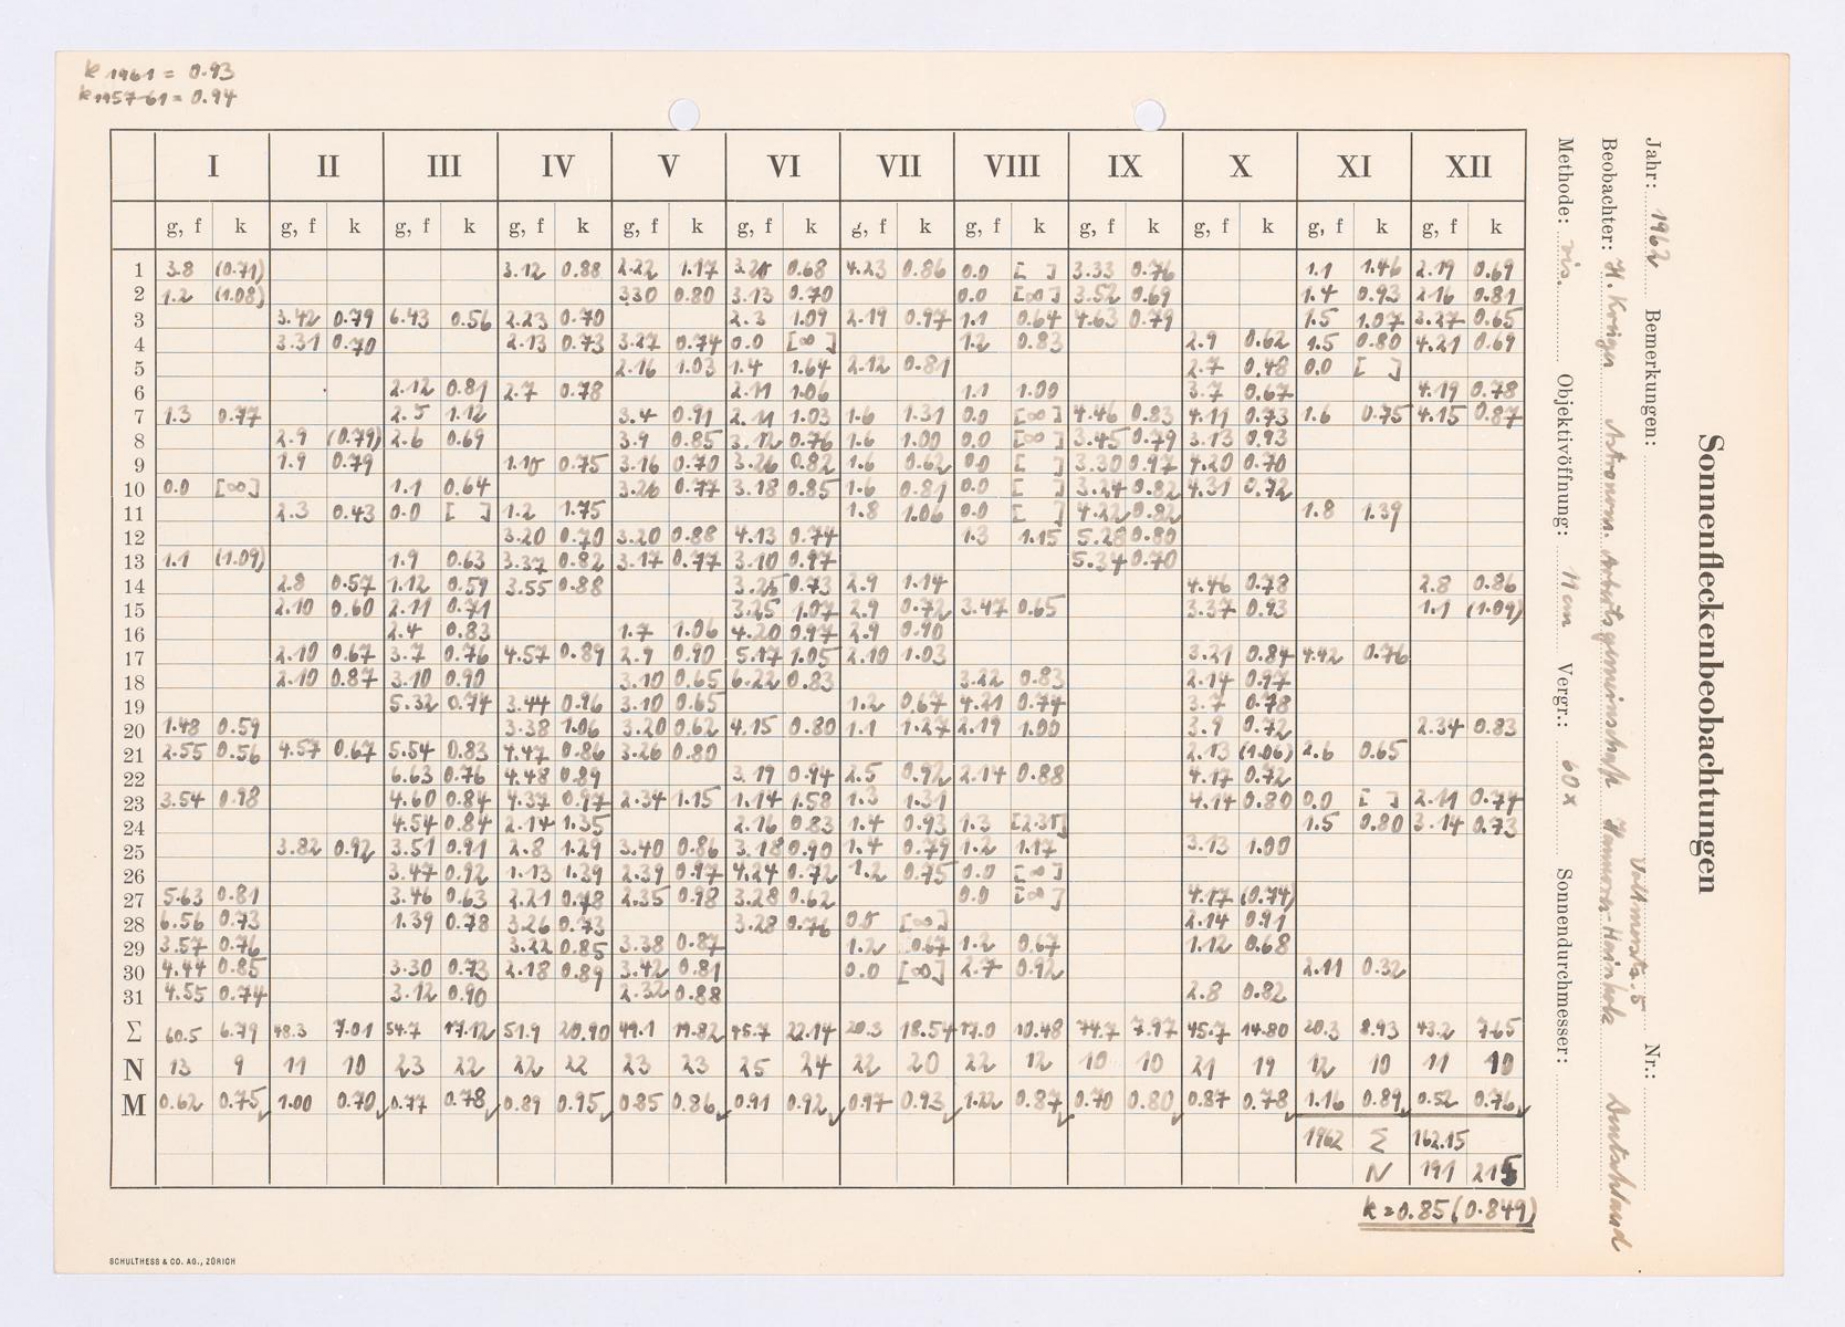 k 1961 = 0.93
k 1957-61 = 0.94
Sonnenfleckenbeobachtungen
Jahr: 1962 Bemerkungen: Nr.:
Beobachter: H. Krüger Astronom. Arbeitsgemeinschaft Hannover-Hainholz Voltmerstr. 5 Deutschland
Methode: vis. Objektivöffnung: 11 cm Vergr.: 60 x Sonnendurchmesser:
I II III IV V VI VII VIII IX X XI XII
g, f k g, f k g, f k g, f k g, f k g, f k g, f k g, f k g, f k g, f k g, f k g, f k
1 3.8 (0.71) 3.12 0.88 2.22 1.17 0.68 4.23 0.86 0.0 [ ] 3.33 0.76 1.1 1.46 2.19 0.69
2 1.2 (1.08) 3.30 0.80 3.13 0.70 0.0 [∞] 3.52 0.69 1.4 0.93 2.16 0.81
3 3.42 0.79 6.43 0.56 2.23 0.70 2.3 1.09 2.19 0.97 1.1 0.64 4.63 0.79 1.5 1.07 3.27 0.65
4 3.31 0.70 2.13 0.73 3.27 0.74 0.0 [∞] 1.2 0.83 2.9 0.62 1.5 0.80 4.21 0.69
5 2.16 1.03 1.4 1.64 2.12 0.81 2.7 0.48 0.0 [ ]
6 2.12 0.81 2.7 0.78 2.11 1.06 1.1 1.00 3.7 0.67 4.19 0.78
7 1.3 0.77 2.5 1.12 3.4 0.91 2.11 1.03 1.6 1.31 0.0 [∞] 4.46 0.83 4.11 0.73 1.6 0.75 4.15 0.87
8 2.9 (0.79) 2.6 0.69 3.9 0.85 3.12 0.76 1.6 1.00 0.0 [∞] 3.45 0.79 3.13 0.93
9 1.9 0.79 1.10 0.75 3.16 0.70 3.26 0.82 1.6 0.62 0.0 [ ] 3.30 0.97 4.20 0.70
10 0.0 [∞] 1.1 0.64 3.26 0.77 3.18 0.85 1.6 0.81 0.0 [ ] 3.24 0.82 4.31 0.72
11 2.3 0.43 0.0 [ ] 1.2 1.75 1.8 1.06 0.0 [ ] 4.22 0.82 1.8 1.39
12 3.20 0.70 3.20 0.88 4.13 0.74 1.3 1.15 5.28 0.80
13 1.1 (1.09) 1.9 0.63 3.37 0.82 3.17 0.77 3.10 0.97 5.34 0.70
14 2.8 0.57 1.12 0.59 3.55 0.88 3.25 0.73 2.9 1.14 4.46 0.78 2.8 0.86
15 2.10 0.60 2.11 0.71 3.25 1.07 2.9 0.72 3.47 0.65 3.37 0.93 1.1 (1.09)
16 2.4 0.83 1.7 1.06 4.20 0.97 2.9 0.90
17 2.10 0.67 3.7 0.76 4.57 0.89 2.9 0.90 5.17 1.05 2.10 1.03 3.21 0.84 4.42 0.76
18 2.10 0.87 3.10 0.90 3.10 0.65 6.22 0.83 3.22 0.83 2.14 0.97
19 5.32 0.74 3.44 0.96 3.10 0.65 1.2 0.67 4.21 0.74 3.7 0.78
20 1.48 0.59 3.38 1.06 3.20 0.62 4.15 0.80 1.1 1.27 2.19 1.00 3.9 0.72 2.34 0.83
21 2.55 0.56 4.57 0.67 5.54 0.83 4.47 0.86 3.26 0.80 2.13 (1.06) 2.6 0.65
22 6.63 0.76 4.48 0.89 3.19 0.94 2.5 0.92 2.14 0.88 4.17 0.72
23 3.54 0.98 4.60 0.84 4.37 0.97 2.34 1.15 1.14 1.58 1.3 1.31 4.14 0.80 0.0 [ ] 2.11 0.74
24 4.54 0.84 2.14 1.35 2.16 0.83 1.4 0.93 1.3 [2.35] 1.5 0.80 3.14 0.73
25 3.82 0.92 3.51 0.91 2.8 1.29 3.40 0.86 3.18 0.90 1.4 0.79 1.2 1.17 3.13 1.00
26 3.47 0.92 1.13 1.39 2.39 0.97 4.24 0.72 1.2 0.75 0.0 [∞]
27 5.63 0.81 3.46 0.63 2.21 0.98 2.35 0.98 3.28 0.62 0.0 [∞] 4.17 (0.74)
28 6.56 0.73 1.39 0.78 3.26 0.73 3.28 0.76 0.0 [∞] 2.14 0.91
29 3.57 0.76 3.22 0.85 3.38 0.87 1.2 0.67 1.2 0.67 1.12 0.68
30 4.44 0.85 3.30 0.73 2.18 0.89 3.42 0.81 0.0 [∞] 2.7 0.92 2.11 0.32
31 4.55 0.74 3.12 0.90 2.32 0.88 2.8 0.82
Σ 60.5 6.79 48.3 7.01 54.7 17.12 51.9 20.90 49.1 19.82 45.7 22.14 20.3 18.54 17.0 10.48 74.7 7.97 45.7 14.80 20.3 8.93 43.2 7.65
N 13 9 11 10 23 22 22 22 23 23 25 24 22 20 22 12 10 10 21 19 12 10 11 10
M 0.62 0.75 1.00 0.70 0.77 0.78 0.89 0.95 0.85 0.86 0.91 0.92 0.97 0.93 1.22 0.87 0.70 0.80 0.87 0.78 1.16 0.89 0.52 0.76
1962 Σ 162.15
N 191 215
k = 0.85 (0.849)
SCHULTHESS & CO. AG., ZÜRICH